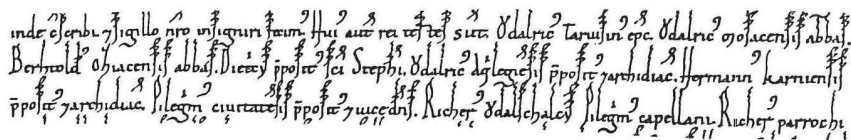 inde c̄scribi ⁊ sigillo nr̄o insigniri fecim᾽. Hui᾽ aut̄ rei testes st̄. Ǒdalric᾽ Taruisin᾽ ep̄c. Ǒdalric᾽ Mosacensis abbas.
Berhtold᾽ Obiacensis abbas. Diet p̄posit᾽ s̄ci Steph̄i. Ǒdalric᾽ Aglegie p̄posit᾽ ⁊ archidiac̄. Hermann᾽ karniensis
p̄posit᾽ ⁊ archidiac̄. Piligrim᾽ ciuitatēs p̄posit᾽ ⁊ uicedn̄s. Richer᾽ Ǒdalschalc᾽ Piligrim᾽ capellani. Richer᾽ parrochi